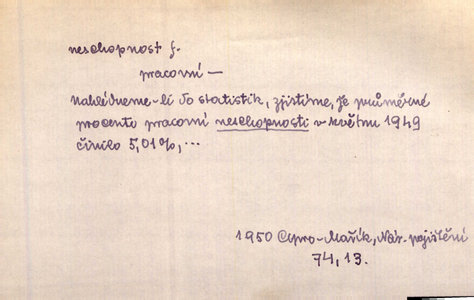 neschopnost f.
pracovní —
nahlédneme-li do statistik, zjistíme, že průměrné
procento pracovní neschopnosti v květnu 1949
činilo 5,01%, ...
1950 Mařík, Nár. pojištění
74, 13.